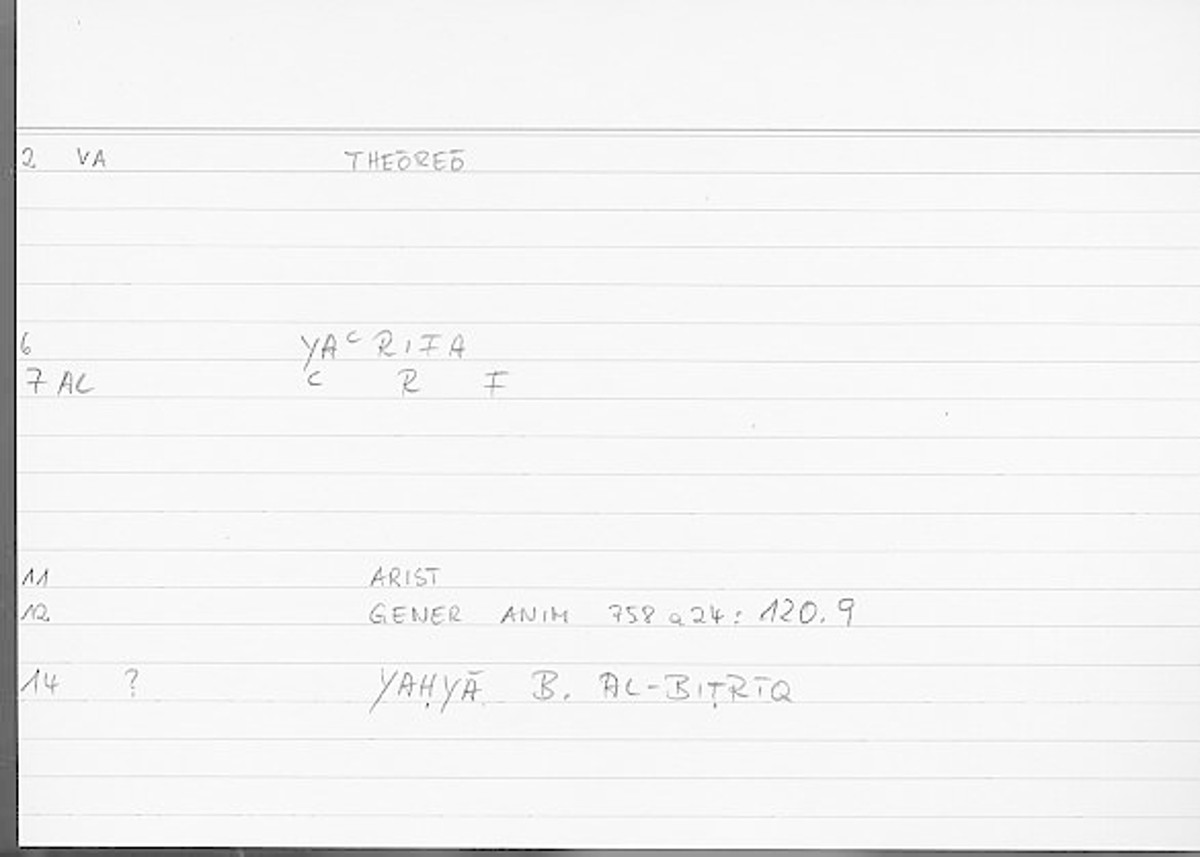 2 VA THEŌREŌ
6 YAᶜRIFA
7 AL ᶜ R F
11 ARIST
12 GENER ANIM 758 a 24 : 120.9
14 ? YAḤYĀ B. AL-BIṬRĪQ